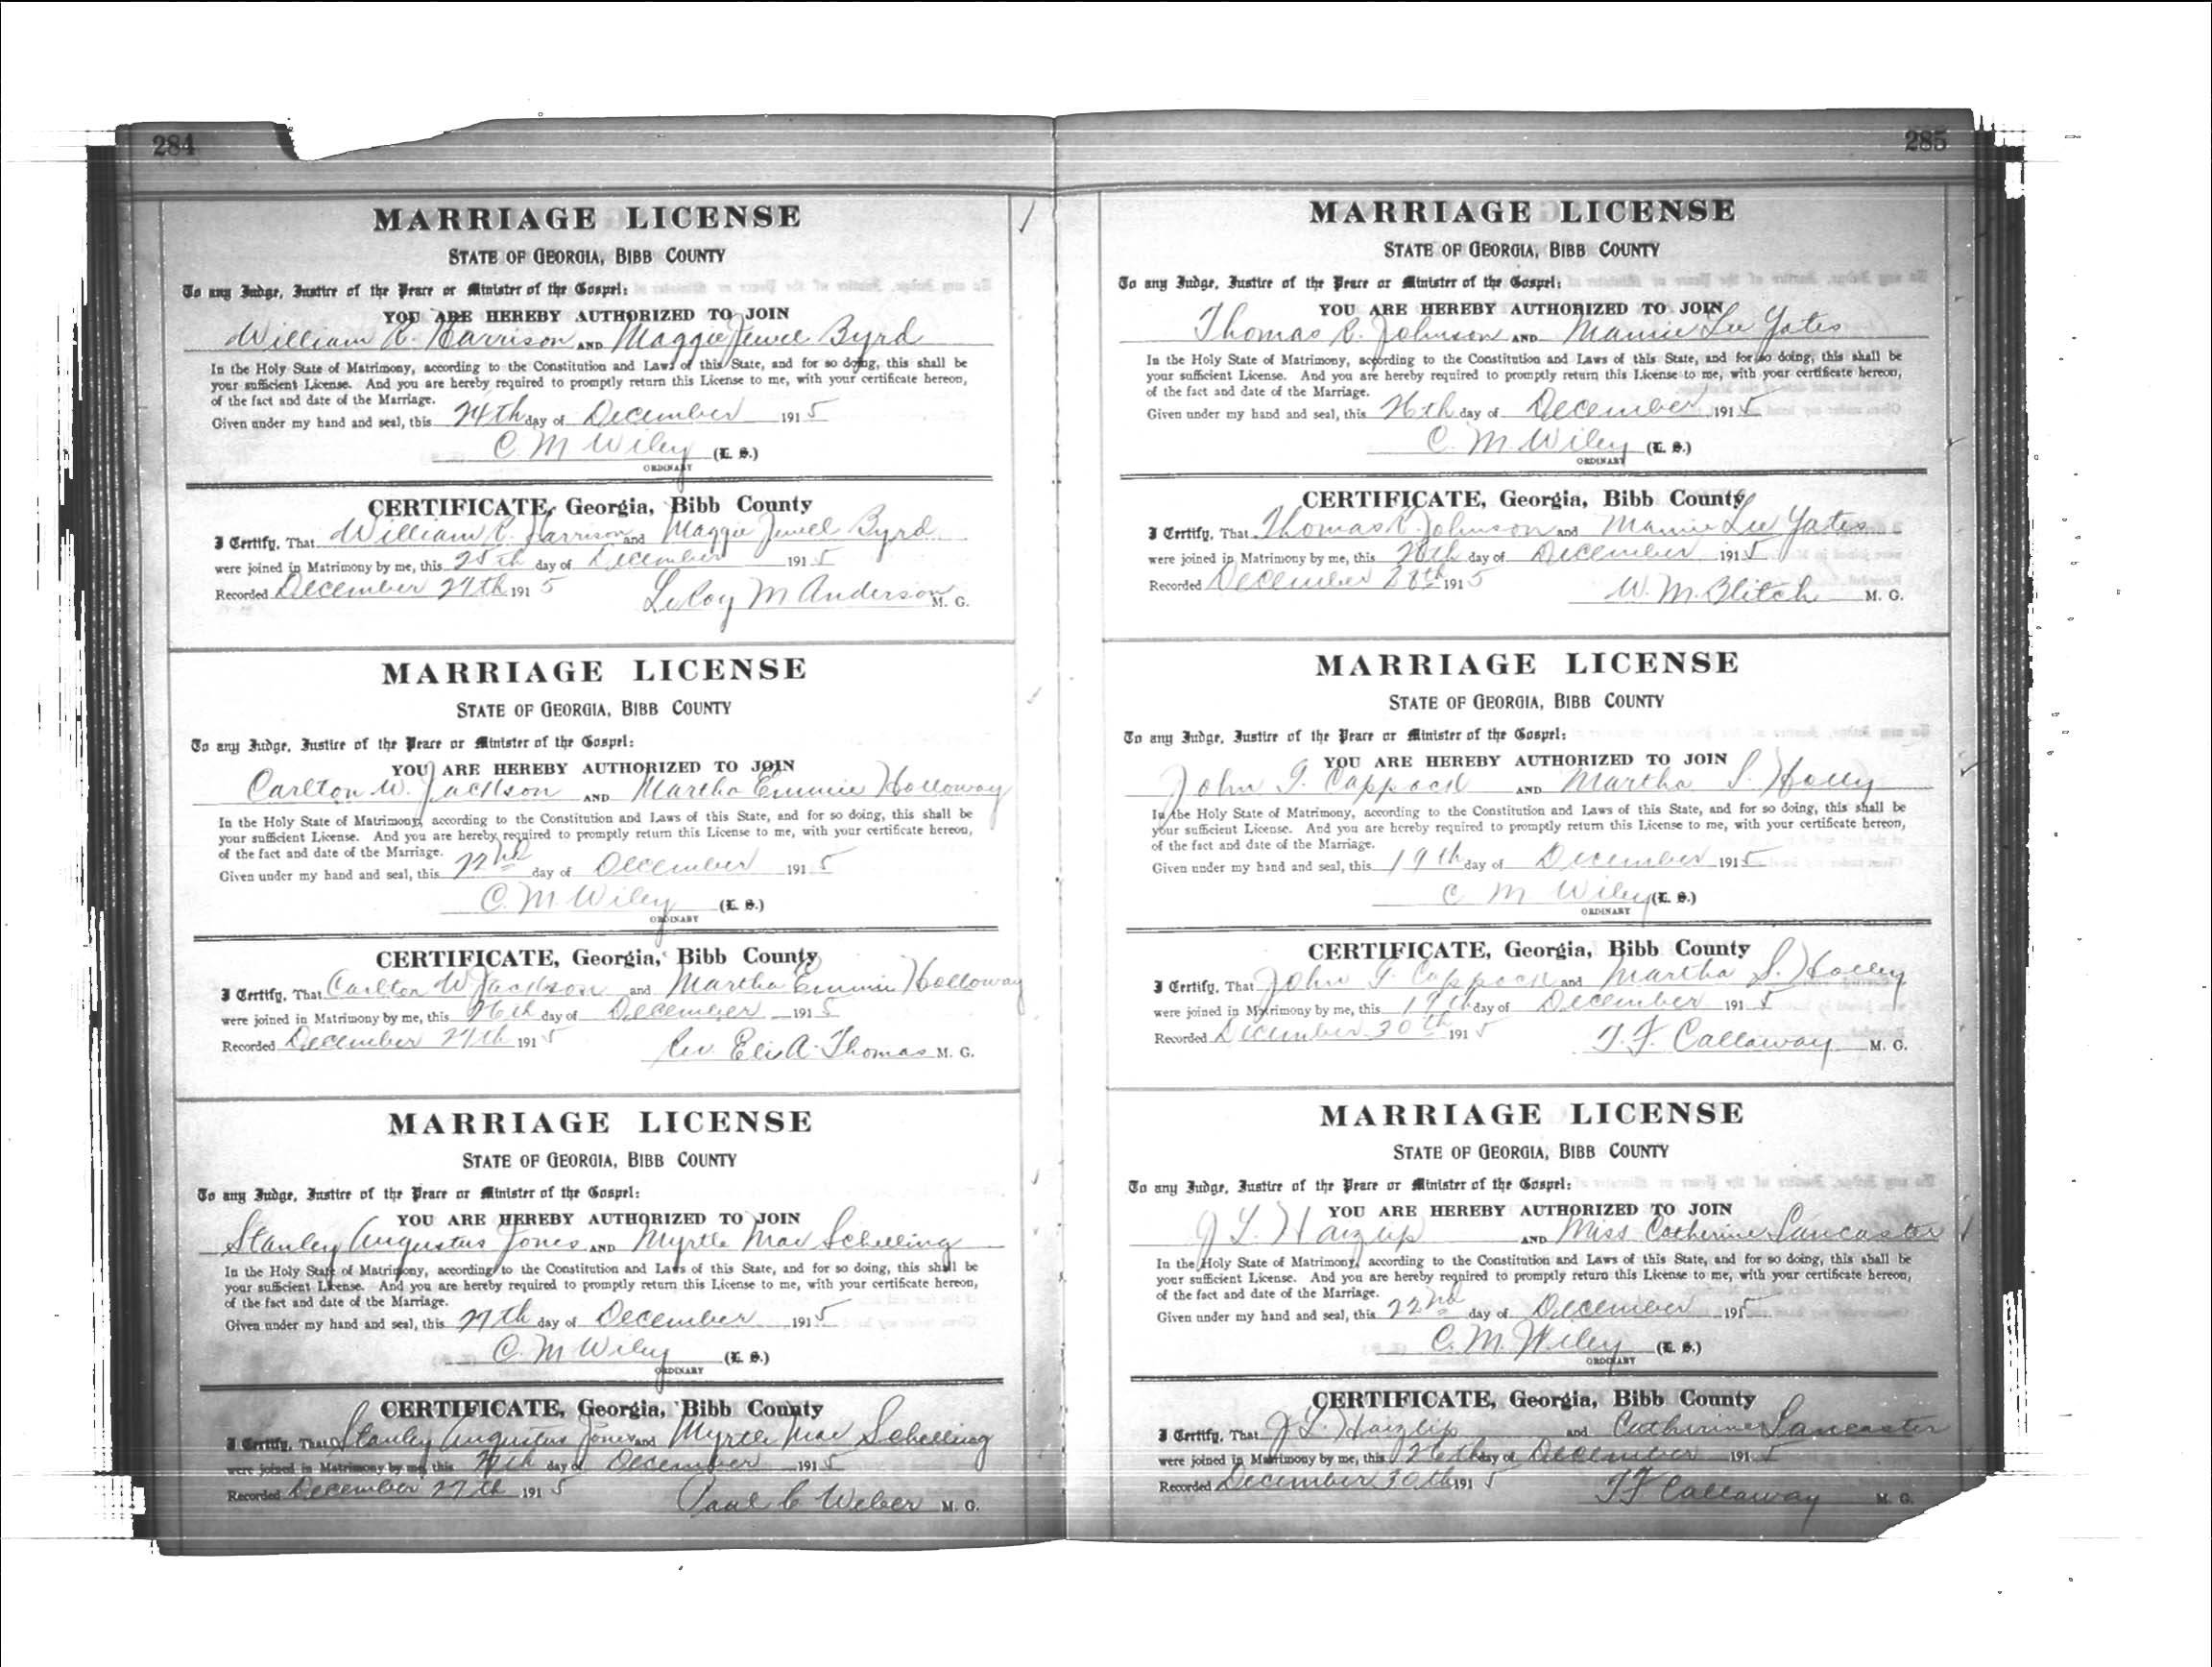 284
MARRIAGE LICENSE
STATE OF GEORGIA, BIBB COUNTY
To any Judge, Justice of the Peace or Minister of the Gospel:
YOU ARE HEREBY AUTHORIZED TO JOIN
William R. Harrison AND Maggie Jewel Byrd
In the Holy State of Matrimony, according to the Constitution and Laws of this State, and for so doing, this shall be
your sufficient License. And you are hereby required to promptly return this License to me, with your certificate hereon,
of the fact and date of the Marriage.
Given under my hand and seal, this 24th day of December 1915
C. M Wiley (L. S.)
ORDINARY
CERTIFICATE, Georgia, Bibb County
I Certify, That William R. Harrison and Maggie Jewell Byrd
were joined in Matrimony by me, this 25th day of December 1915
Recorded December 27th 1915 LeRoy M Anderson M. G.
MARRIAGE LICENSE
STATE OF GEORGIA, BIBB COUNTY
To any Judge, Justice of the Peace or Minister of the Gospel:
YOU ARE HEREBY AUTHORIZED TO JOIN
Carlton W. Jackson AND Martha Emmie Holloway
In the Holy State of Matrimony, according to the Constitution and Laws of this State, and for so doing, this shall be
your sufficient License. And you are hereby required to promptly return this License to me, with your certificate hereon,
of the fact and date of the Marriage.
Given under my hand and seal, this 22nd day of December 1915
C. M Wiley (L. S.)
ORDINARY
CERTIFICATE, Georgia, Bibb County
I Certify, That Carlton W Jackson and Martha Emmie Holloway
were joined in Matrimony by me, this 26th day of December 1915
Recorded December 27th 1915 Rev. Eli A. Thomas M. G.
MARRIAGE LICENSE
STATE OF GEORGIA, BIBB COUNTY
To any Judge, Justice of the Peace or Minister of the Gospel:
YOU ARE HEREBY AUTHORIZED TO JOIN
Stanley Augustus Jones AND Myrtle Mae Schelling
In the Holy State of Matrimony, according to the Constitution and Laws of this State, and for so doing, this shall be
your sufficient License. And you are hereby required to promptly return this License to me, with your certificate hereon,
of the fact and date of the Marriage.
Given under my hand and seal, this 27th day of December 1915
C. M Wiley (L. S.)
ORDINARY
CERTIFICATE, Georgia, Bibb County
I Certify, That Stanley Augustus Jones and Myrtle Mae Schelling
were joined in Matrimony by me, this 27th day of December 1915
Recorded December 27th 1915 Paul C Weber M. G.
285
MARRIAGE LICENSE
STATE OF GEORGIA, BIBB COUNTY
To any Judge, Justice of the Peace or Minister of the Gospel:
YOU ARE HEREBY AUTHORIZED TO JOIN
Thomas R. Johnson AND Mamie Lee Yates
In the Holy State of Matrimony, according to the Constitution and Laws of this State, and for so doing, this shall be
your sufficient License. And you are hereby required to promptly return this License to me, with your certificate hereon,
of the fact and date of the Marriage.
Given under my hand and seal, this 26th day of December 1915
C. M Wiley (L. S.)
ORDINARY
CERTIFICATE, Georgia, Bibb County
I Certify, That Thomas R. Johnson and Mamie Lee Yates
were joined in Matrimony by me, this 26th day of December 1915
Recorded December 28th 1915 W. M. Blitch M. G.
MARRIAGE LICENSE
STATE OF GEORGIA, BIBB COUNTY
To any Judge, Justice of the Peace or Minister of the Gospel:
YOU ARE HEREBY AUTHORIZED TO JOIN
John G. Cappock AND Martha S. Holly
In the Holy State of Matrimony, according to the Constitution and Laws of this State, and for so doing, this shall be
your sufficient License. And you are hereby required to promptly return this License to me, with your certificate hereon,
of the fact and date of the Marriage.
Given under my hand and seal, this 19th day of December 1915
C M Wiley (L. S.)
ORDINARY
CERTIFICATE, Georgia, Bibb County
I Certify, That John G. Cappock and Martha S. Holley
were joined in Matrimony by me, this 19th day of December 1915
Recorded December 30th 1915 T. F. Callaway M. G.
MARRIAGE LICENSE
STATE OF GEORGIA, BIBB COUNTY
To any Judge, Justice of the Peace or Minister of the Gospel:
YOU ARE HEREBY AUTHORIZED TO JOIN
J L. Haizlip AND Miss Catherine Lancaster
In the Holy State of Matrimony, according to the Constitution and Laws of this State, and for so doing, this shall be
your sufficient License. And you are hereby required to promptly return this License to me, with your certificate hereon,
of the fact and date of the Marriage.
Given under my hand and seal, this 22nd day of December 1915
C. M. Wiley (L. S.)
ORDINARY
CERTIFICATE, Georgia, Bibb County
I Certify, That J L. Haizlip and Catherine Lancaster
were joined in Matrimony by me, this 26th day of December 1915
Recorded December 30th 1915 T F Callaway M. G.